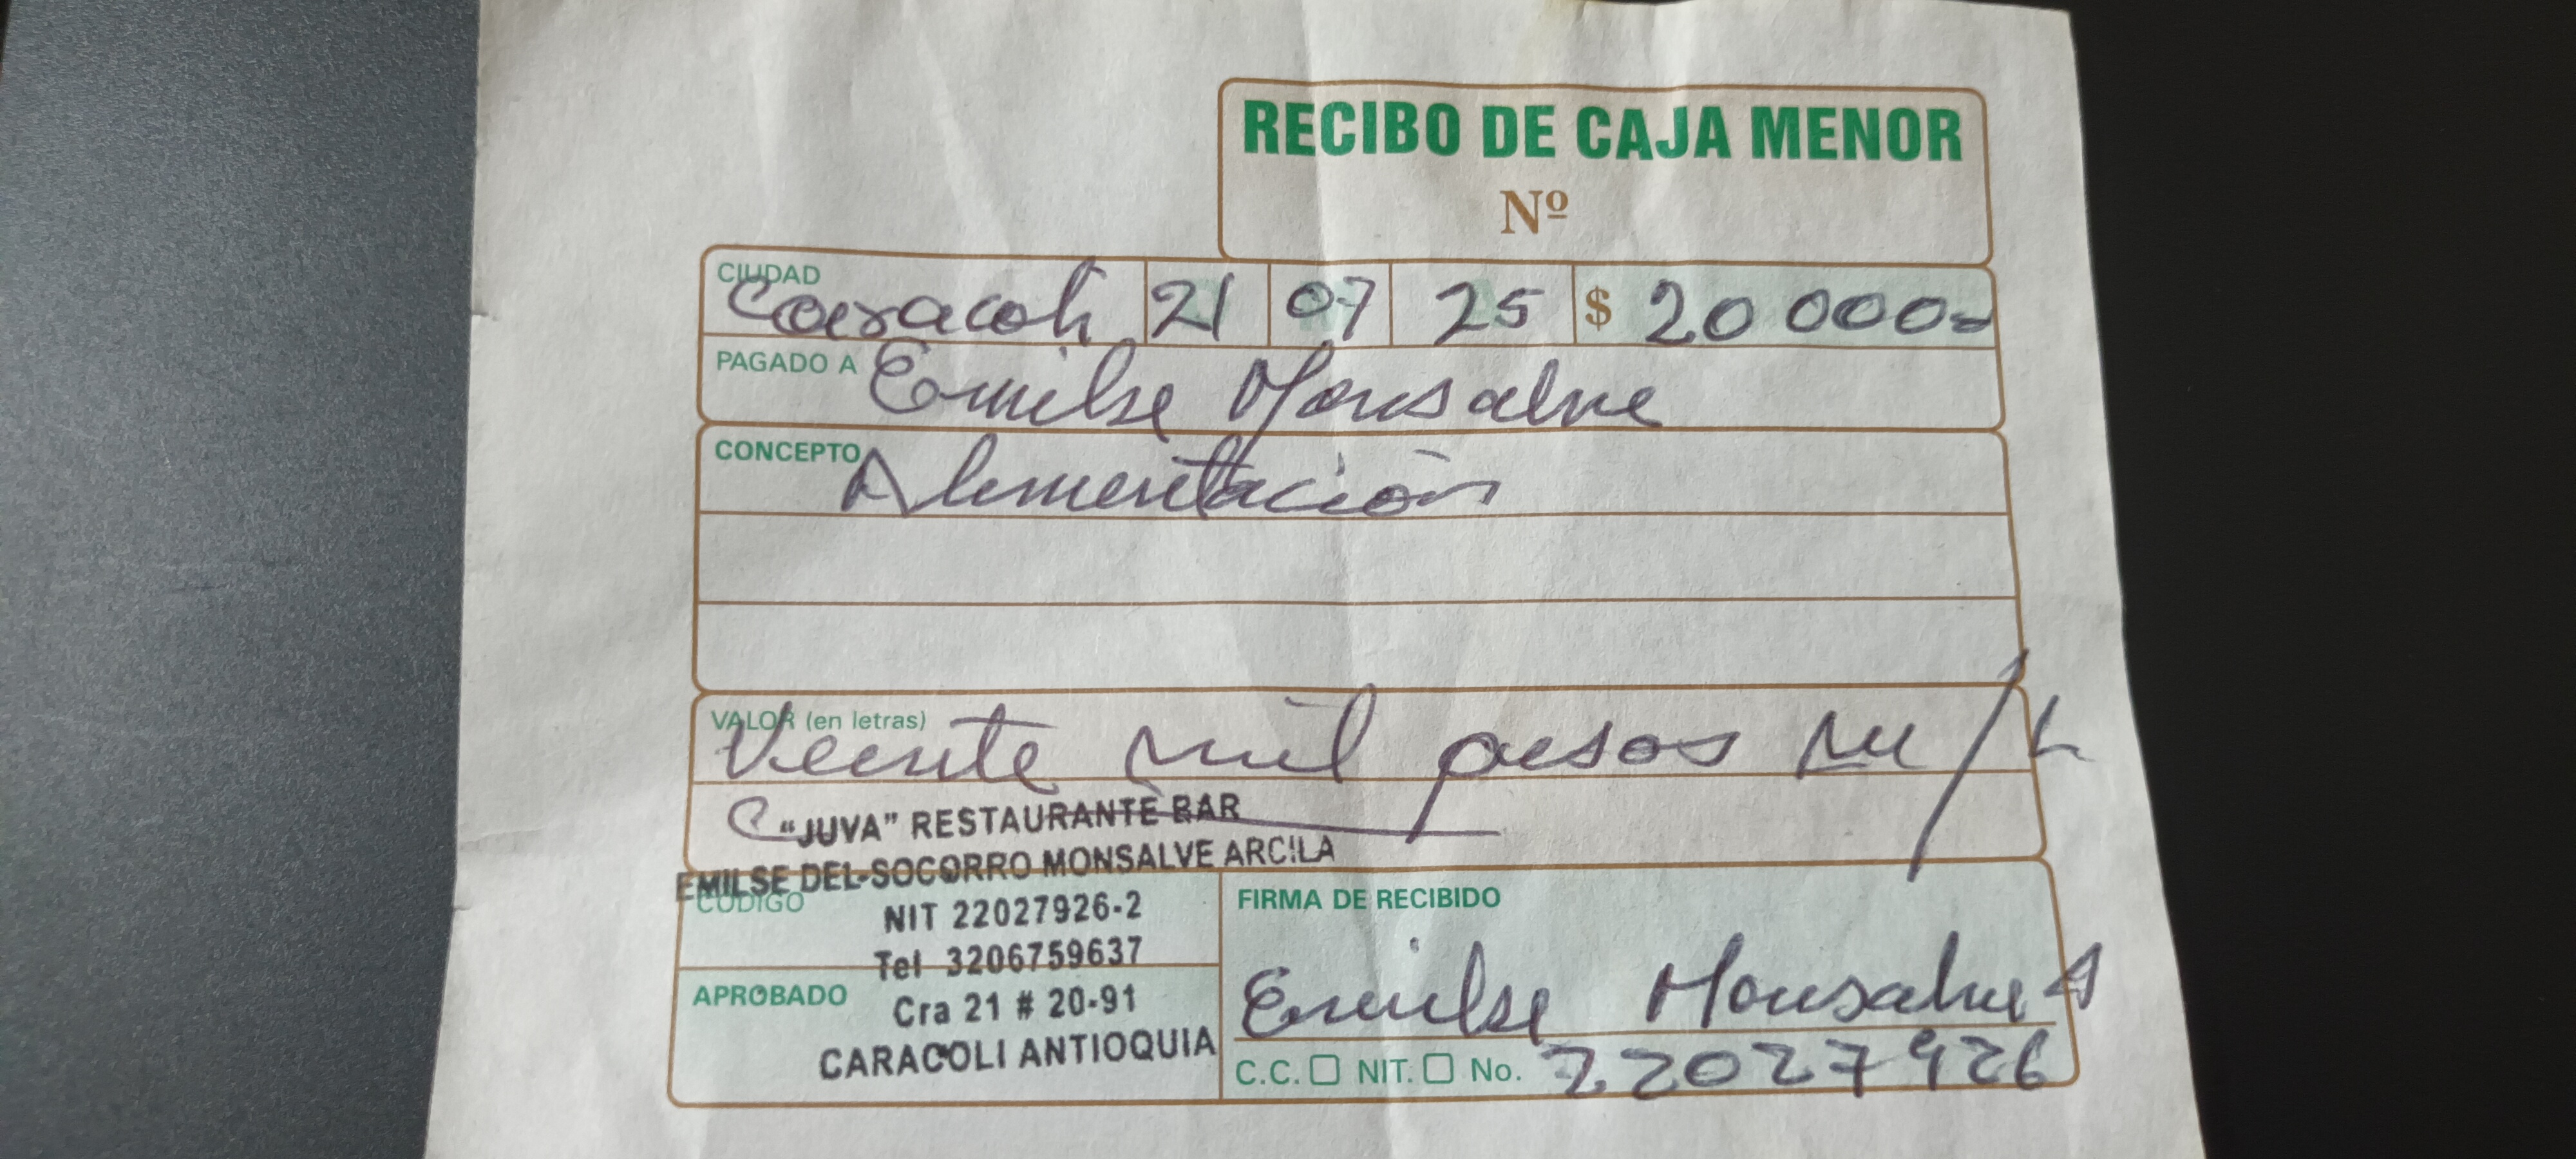 RECIBO DE CAJA MENOR
Nº
CIUDAD Caracolí 21 07 25 $ 20 000=
PAGADO A Emilse Monsalve
CONCEPTO Alimentación
VALOR (en letras)
Veinte mil pesos m/L
"JUVA" RESTAURANTE BAR
EMILSE DEL SOCORRO MONSALVE ARCILA
CODIGO
NIT 22027926-2
Tel 3206759637
APROBADO
Cra 21 # 20-91
CARACOLI ANTIOQUIA
FIRMA DE RECIBIDO
Emilse Monsalve A
C.C. NIT. No. 22027926